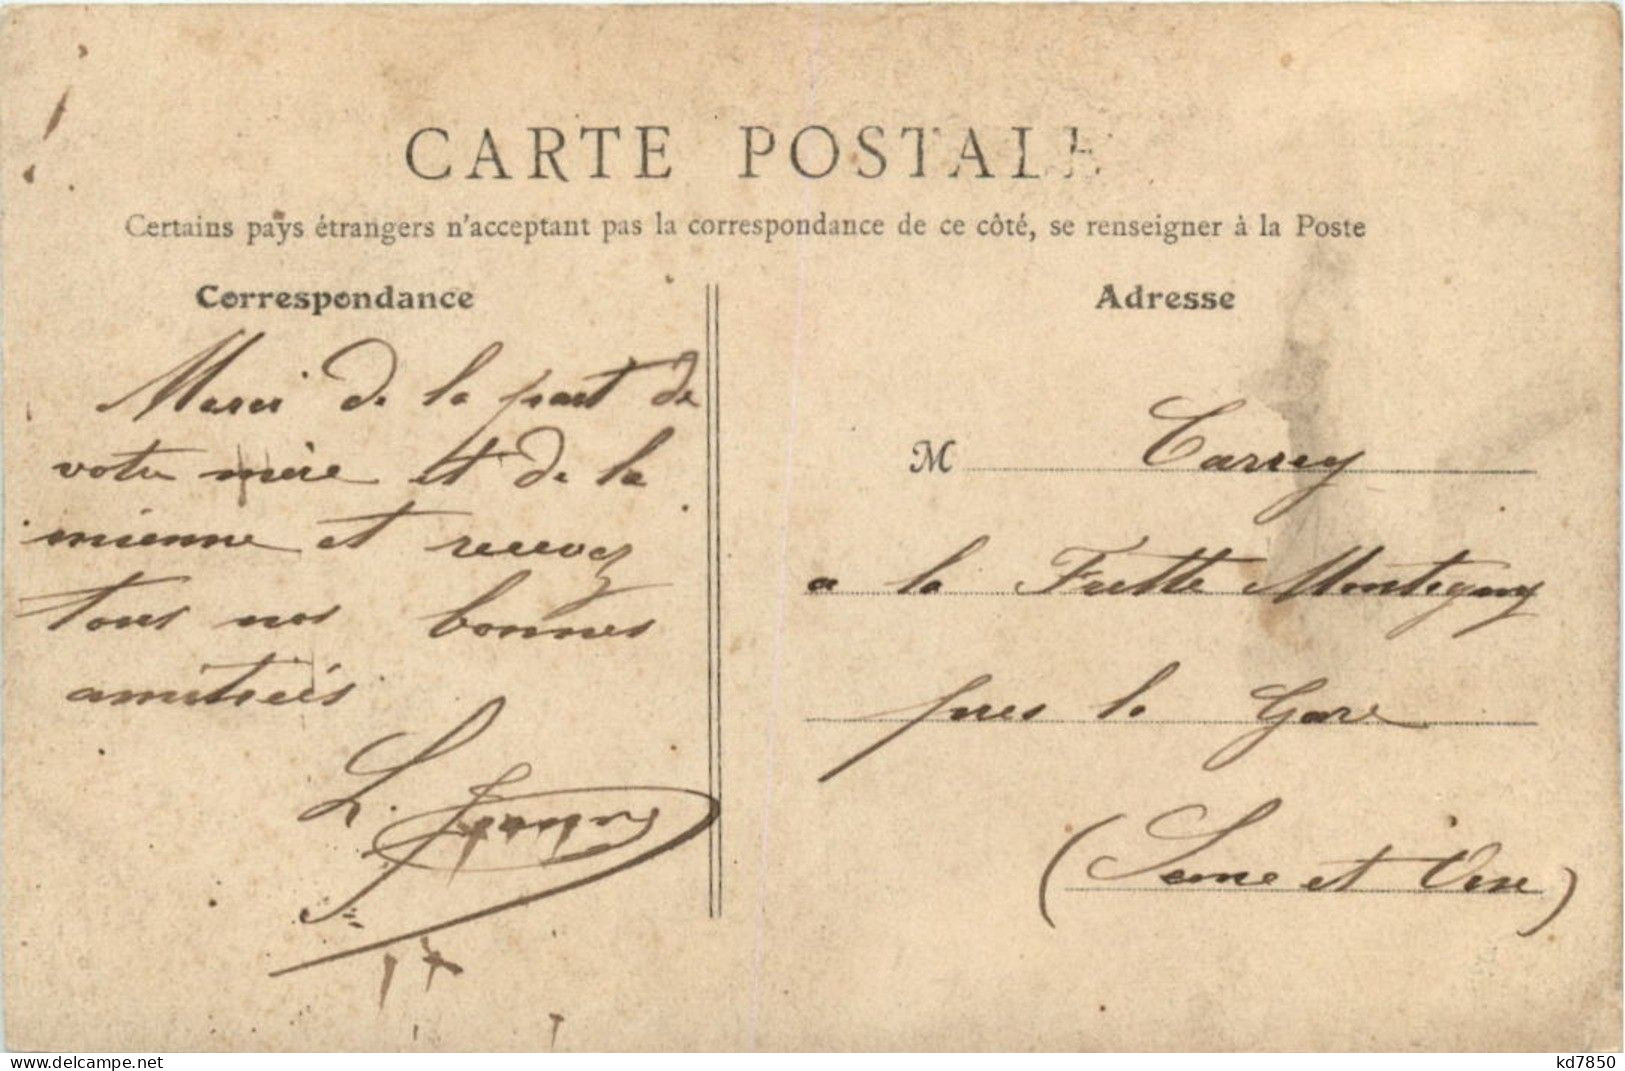 CARTE POSTALE
Certains pays étrangers n'acceptant pas la correspondance de ce côté, se renseigner à la Poste
Correspondance
Merci de la part de
votre mère et de la
mienne et recevez
tous nos bonnes
amitiées
L.
Adresse
M Carrey
a la Frette Montigny
pres la Gare
(Seine et Oise)
www.delcampe.net
kd7850